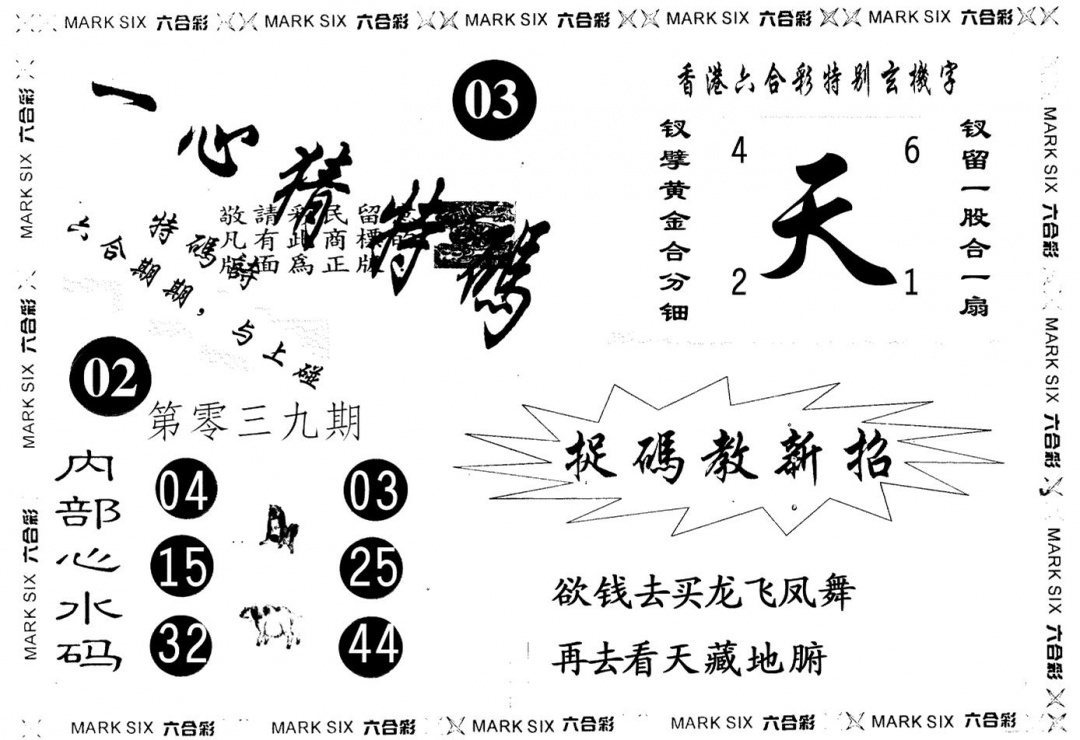 MARK SIX 六合彩 MARK SIX 六合彩 MARK SIX 六合彩 MARK SIX 六合彩 MARK SIX 六合彩
MARK SIX 六合彩
MARK SIX 六合彩
MARK SIX 六合彩
一心猜特碼
03
敬請彩民留意
凡有此商標的
版面為正版
特碼詩
六合期期，与上碰
02
第零三九期
内部心水码
04 03
15 25
32 44
香港六合彩特别玄機字
钗擘黄金合分钿
4 6
天
2 1
钗留一股合一扇
捉碼教新招
欲钱去买龙飞凤舞
再去看天藏地腑
MARK SIX 六合彩
MARK SIX 六合彩
MARK SIX 六合彩
MARK SIX 六合彩 MARK SIX 六合彩 MARK SIX 六合彩 MARK SIX 六合彩 MARK SIX 六合彩